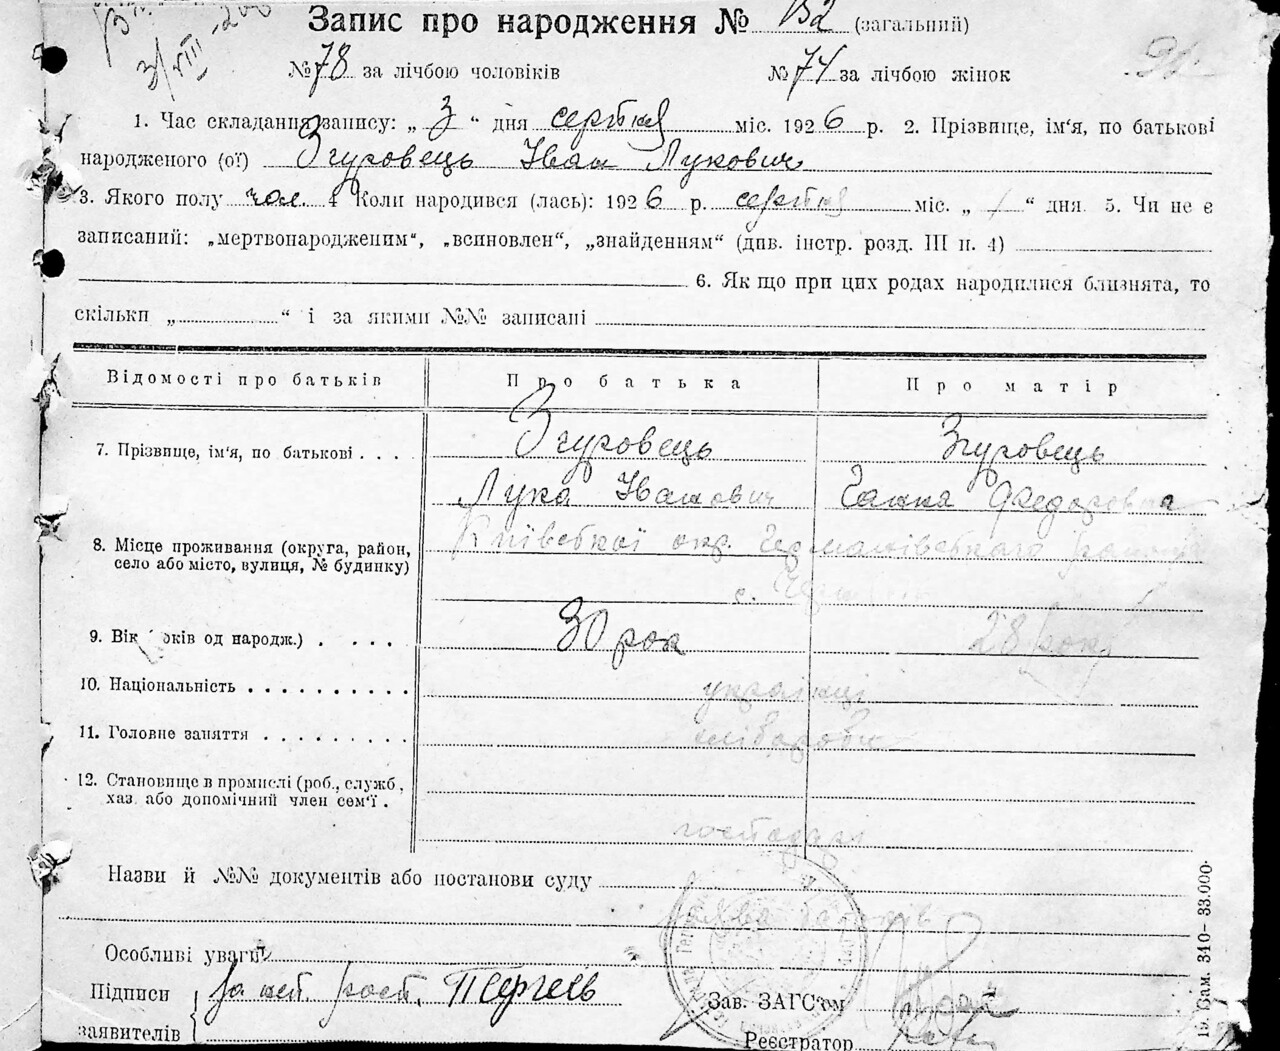 Запис про народження № 152 (загальний)
3/VIII
№ 78 за лічбою чоловіків № 74 за лічбою жінок
1. Час складання запису: „ 3 “ дня серпня міс. 1926 р. 2. Прізвище, ім'я, по батькові
народженого (ої) Згуровець Іван Лукович
3. Якого полу чол. 4 Коли народився (лась): 1926 р. серпня міс. „ 1 “ дня. 5. Чи не є
записаний: „мертвонародженим“, „всиновлен“, „знайденням“ (див. інстр. розд. III п. 4)
6. Як що при цих родах народилися близнята, то
скільки „ “ і за якими №№ записані
Відомості про батьків Про батька Про матір
7. Прізвище, ім'я, по батькові . . . . Згуровець Згуровець
Лука Іванович Ганна Федоровна
8. Місце проживання (округа, район, Київської окр. Германівського району
село або місто, вулиця, № будинку) с.
9. Вік років од народж.) . . . . . 30 рок 28 рок
10. Національність . . . . . . . . . . українці
11. Головне заняття . . . . . . . . . хлібороби
12. Становище в промислі (роб., служб.,
хаз. або допомічний член сем'ї .
господарі
Назви й №№ документів або постанови суду
Особливі уваги
Підписи
заявителів
Зав. ЗАГС'ом
Реєстратор
19. Зам. 340—33.000.